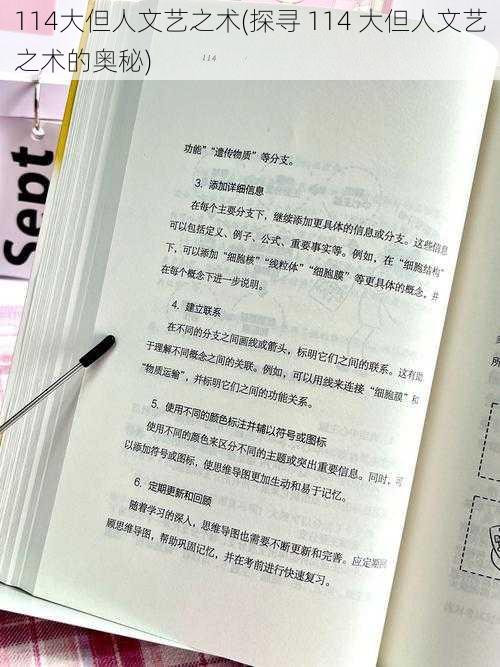 114大但人文艺之术(探寻 114 大但人文艺
之术的奥秘)
114
Sept
功能”“遗传物质”等分支。
3. 添加详细信息
在每个主要分支下，继续添加更具体的信息或分支。这些信息
可以包括定义、例子、公式、重要事实等。例如，在“细胞结构”
下，可以添加“细胞核”“线粒体”“细胞膜”等更具体的概念，并
在每个概念下进一步说明。
4. 建立联系
在不同的分支之间画线或箭头，标明它们之间的联系。这有助
于理解不同概念之间的关联。例如，可以用线来连接“细胞膜”和
“物质运输”，并标明它们之间的功能关系。
5. 使用不同的颜色标注并辅以符号或图标
使用不同的颜色来区分不同的主题或突出重要信息。同时，可
以添加符号或图标，使思维导图更加生动和易于记忆。
6. 定期更新和回顾
随着学习的深入，思维导图也需要不断更新和完善。应定期回
顾思维导图，帮助巩固记忆，并在考前进行快速复习。
所